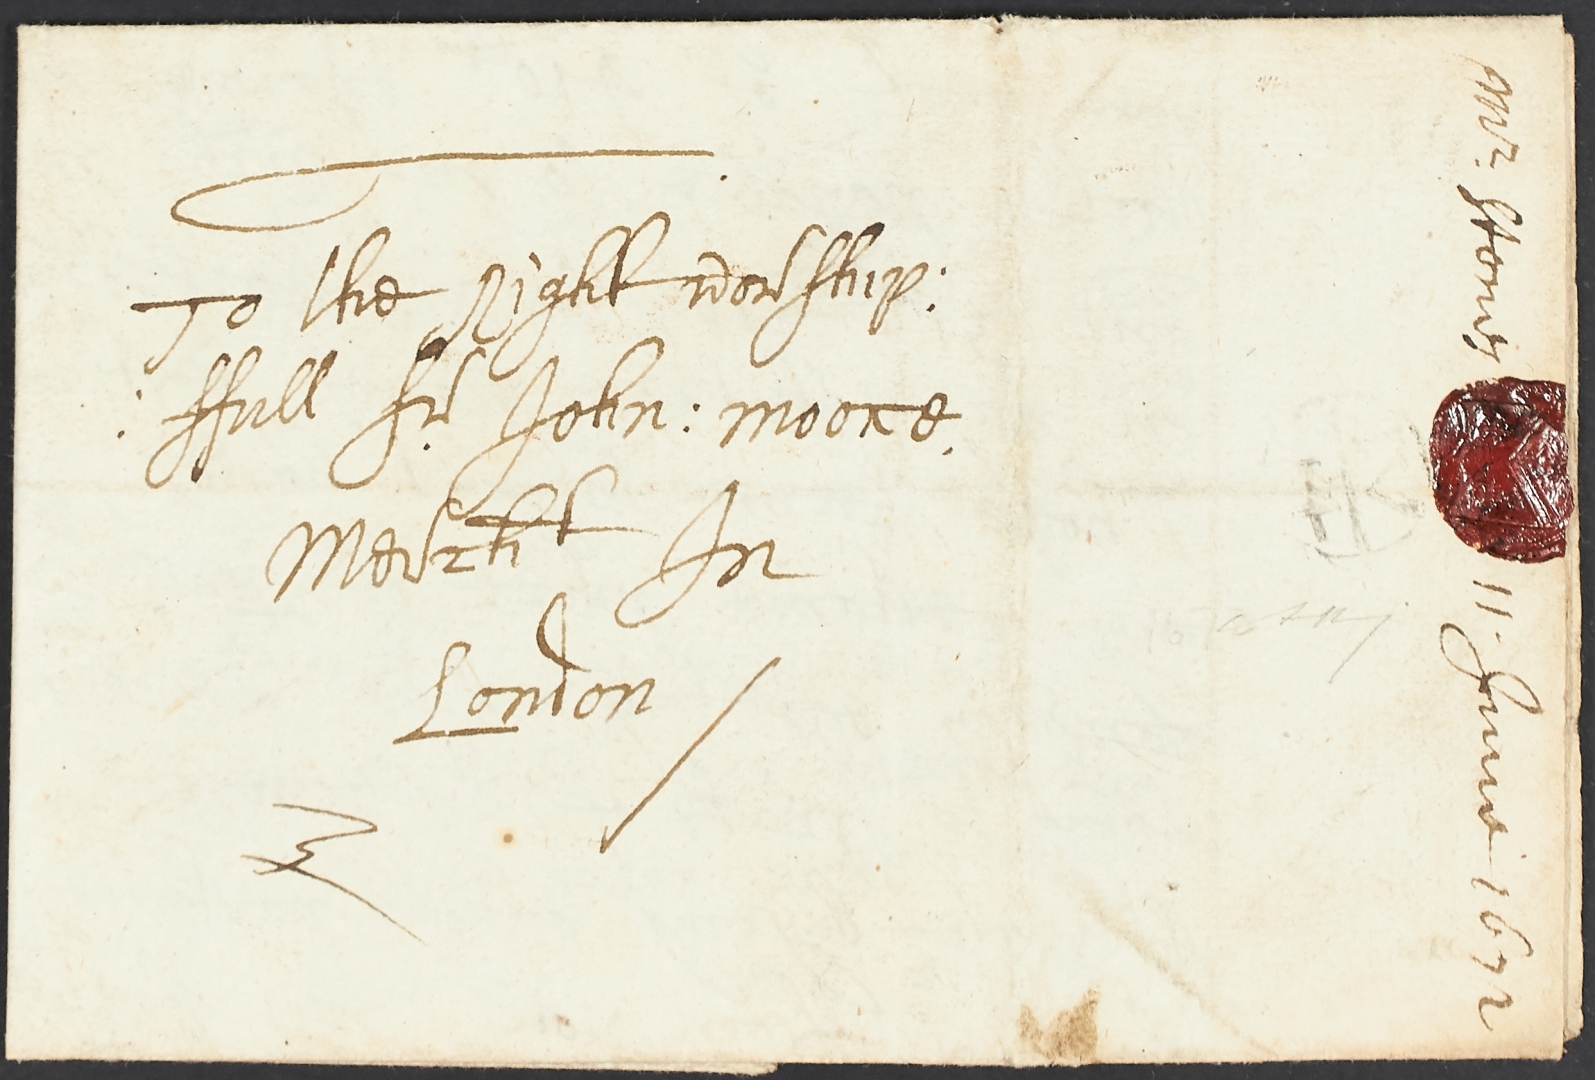 To the Right worship:
: ffull Sr. John: Moore.
Mercht In
London
Mr. Stones
11. June 1672